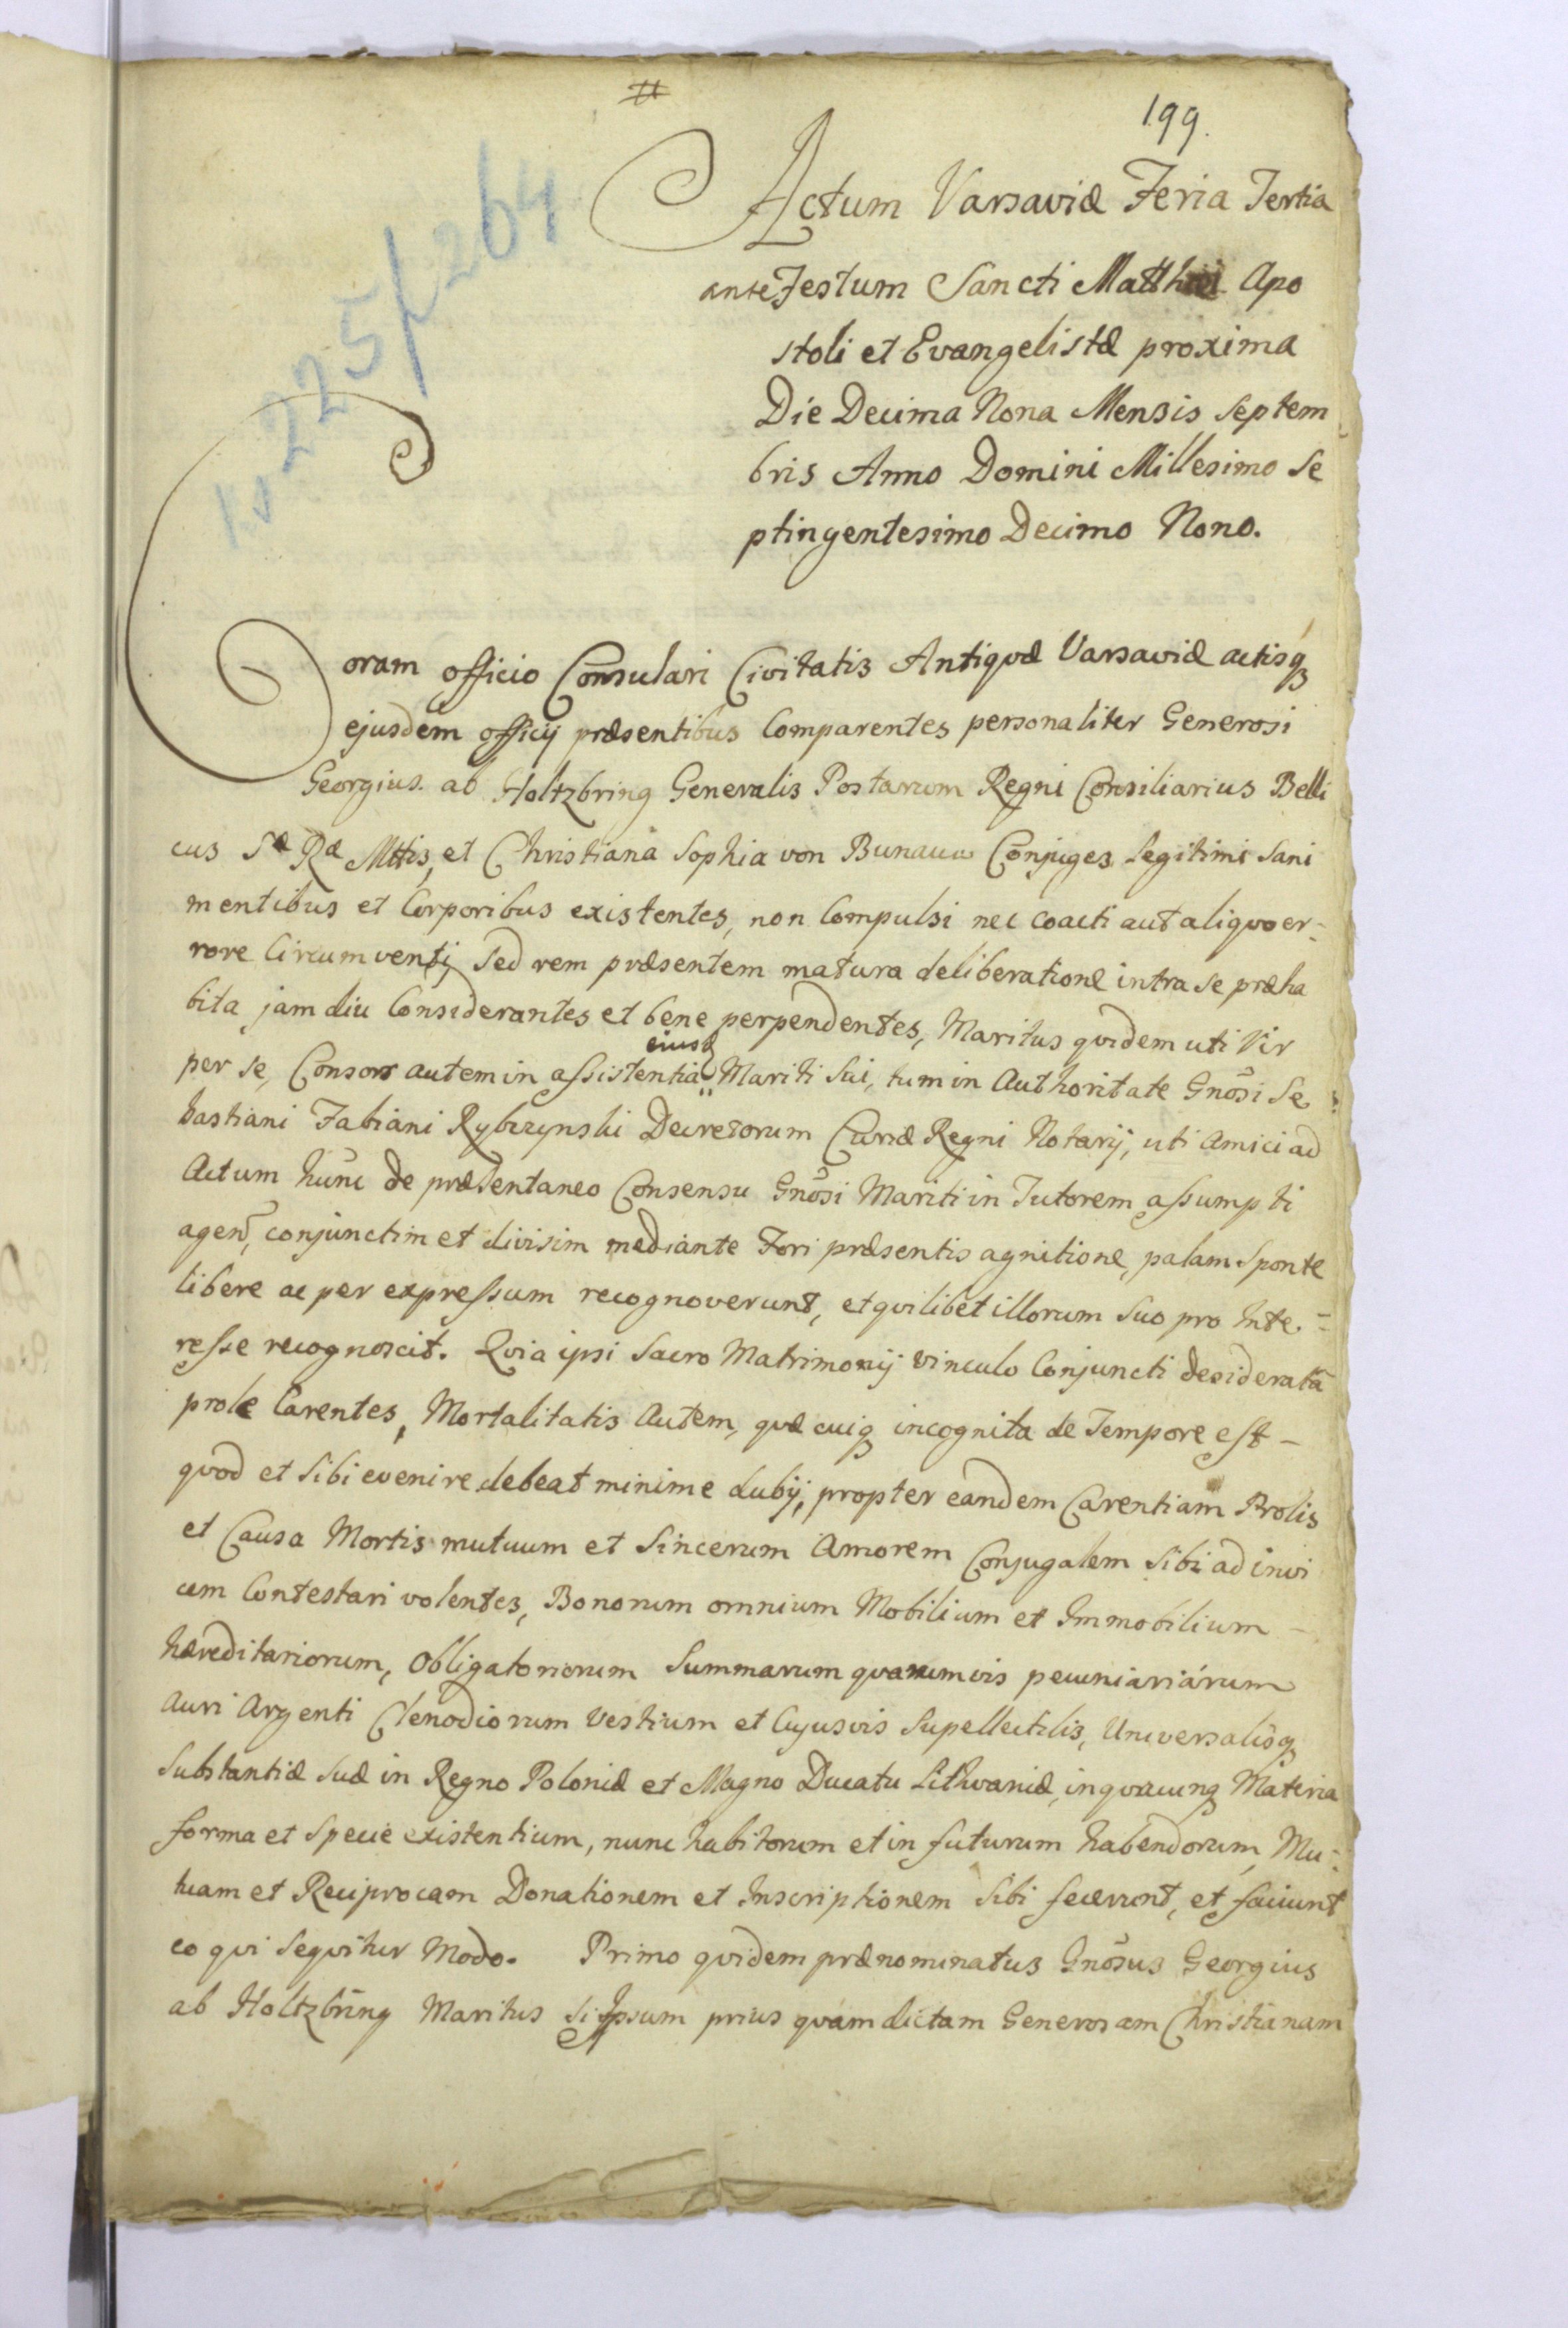 #
199.
225/264
Actum Varsaviæ Feria Tertia
ante Festum Sancti Matthæi Apo
stoli et Evangelistæ proxima
Die Decima Nona Mensis Septem
bris Anno Domini Millesimo Se
ptingentesimo Decimo Nono.
Coram officio Consulari Civitatis Antiqvæ Varsaviæ actisq3
ejusdem officij præsentibus Comparentes personaliter Generosi
Georgius ab Holtzbring Generalis Postarum Regni Consiliarius Belli
cus Sæ Ræ Mttis, et Christiana Sophia von Bunauw Conjuges Legitimi Sani
mentibus et Corporibus existentes, non Compulsi nec coacti aut aliqvo er-
rore Circumventi, Sed rem præsentem matura deliberatione intra se præha
bita jam diu Considerantes et bene perpendentes, Maritus qvidem uti Vir
per se, Consors autem in assistentia eiusd Mariti Sui, tum in Authoritate Gnosi Se
bastiani Fabiani Rybczynski Decretorum Curiæ Regni Notarij, uti Amici ad
Actum hunc de præsentaneo Consensu Gnosi Mariti in Tutorem assumpti
agen, conjunctim et divisim mediante Fori præsentis agnitione, palam Sponte
libere ac per expressum recognoverunt, et qvilibet illorum Suo pro Inte-
resse recognoscit. Qvia ipsi Sacro Matrimonij vinculo Conjuncti desideratâ
prole Carentes, Mortalitatis Autem, qvæ cuiq3 incognita de Tempore est -
qvod et Sibi evenire debeat minime dubij, propter eandem Carentiam Prolis
et Causa Mortis mutuum et Sincerum Amorem Conjugalem Sibi ad invi
cem Contestari volentes, Bonorum omnium Mobilium et Immobilium -
hæreditariorum, Obligatoriorum Summarum qvarumvis pecuniariarum
Auri Argenti Clenodiorum Vestium et Cujusvis Supellectilis, Universalisq3
Substantiæ Suæ in Regno Poloniæ et Magno Ducatu Lithvaniæ, in qvacunq3 Materia
forma et Specie existentium, nunc habitorum et in futurum habendorum, Mu-
tuam et Reciprocam Donationem et Inscriptionem Sibi fecerunt, et faciunt
eo qvi Seqvitur Modo. Primo qvidem prænominatus Gnosus Georgius
ab Holtzbring Maritus Si Ipsum prius qvam dictam Generosam Christianam